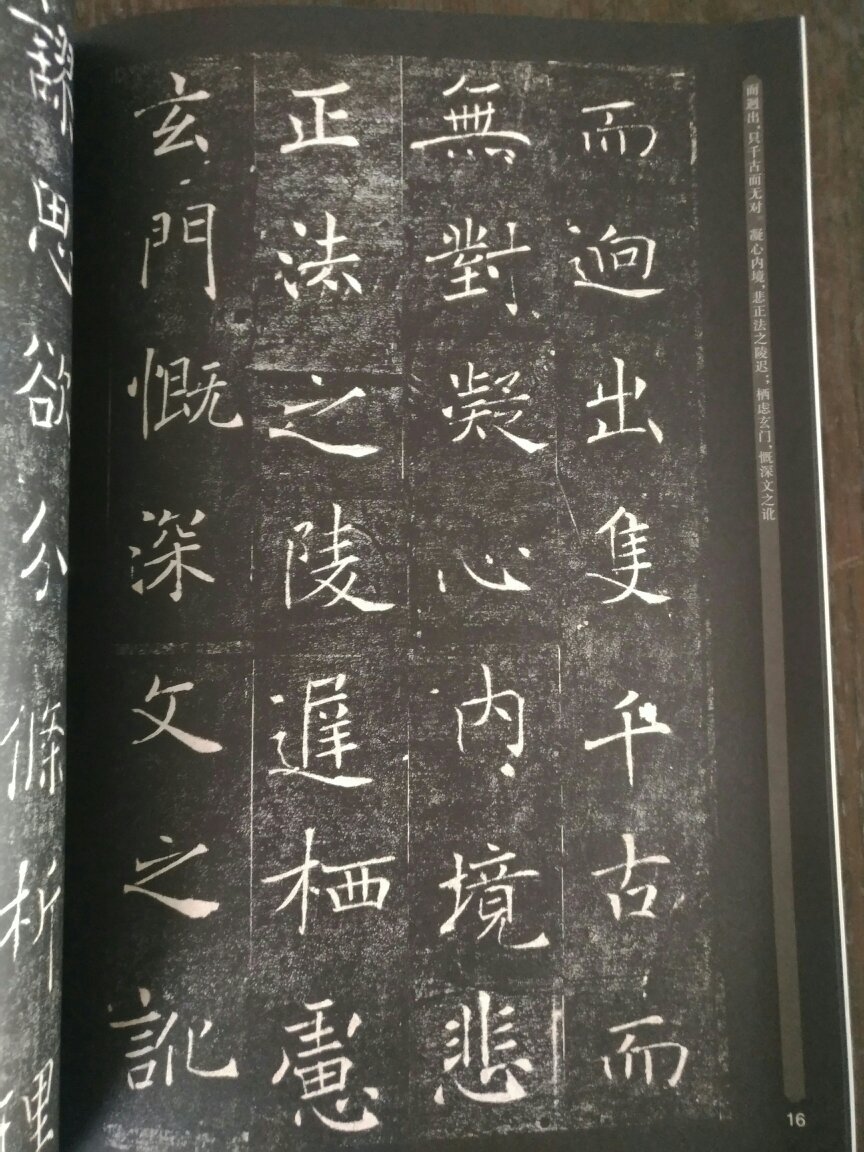 而迥出，只千古而无对。凝心内境，悲正法之陵迟；栖虑玄门，慨深文之讹
而迥出隻千古而
無對凝心内境悲
正法之陵遲栖慮
玄門慨深文之訛
謬思欲分條析理
16